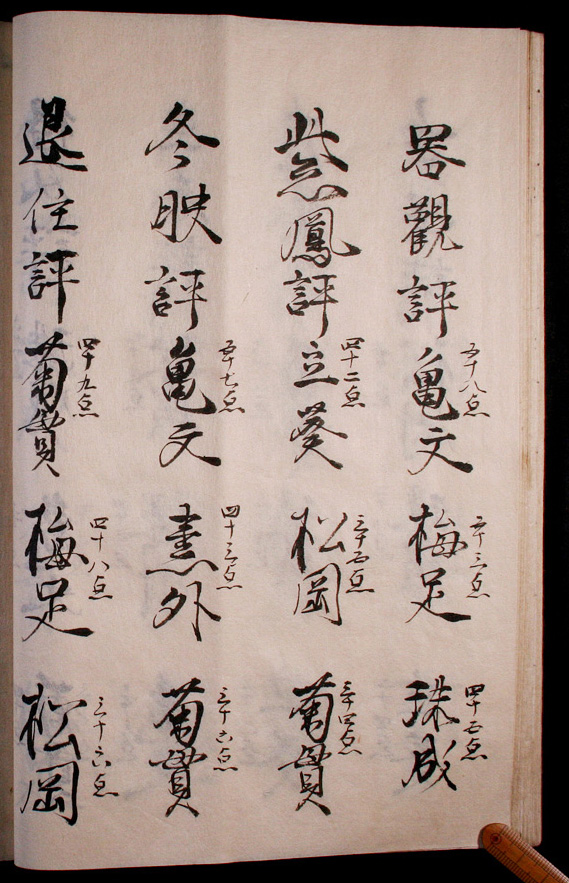 器觀評 亀文 五十八点 梅足 五十三点 珠成 四十五点
紫鳳評 立葵 四十二点 松岡 三十五点 菊貫 三十四点
冬映評 亀文 五十七点 外 四十三点 菊貫 三十六点
退住評 菊貫 四十九点 梅足 四十八点 松岡 三十六点